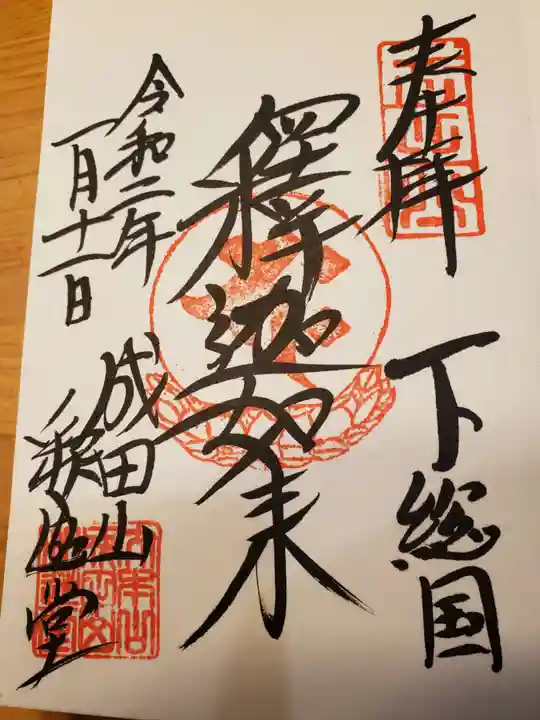 奉拝
下総国
釋迦如来
令和二年
一月十一日
成田山
釈迦堂